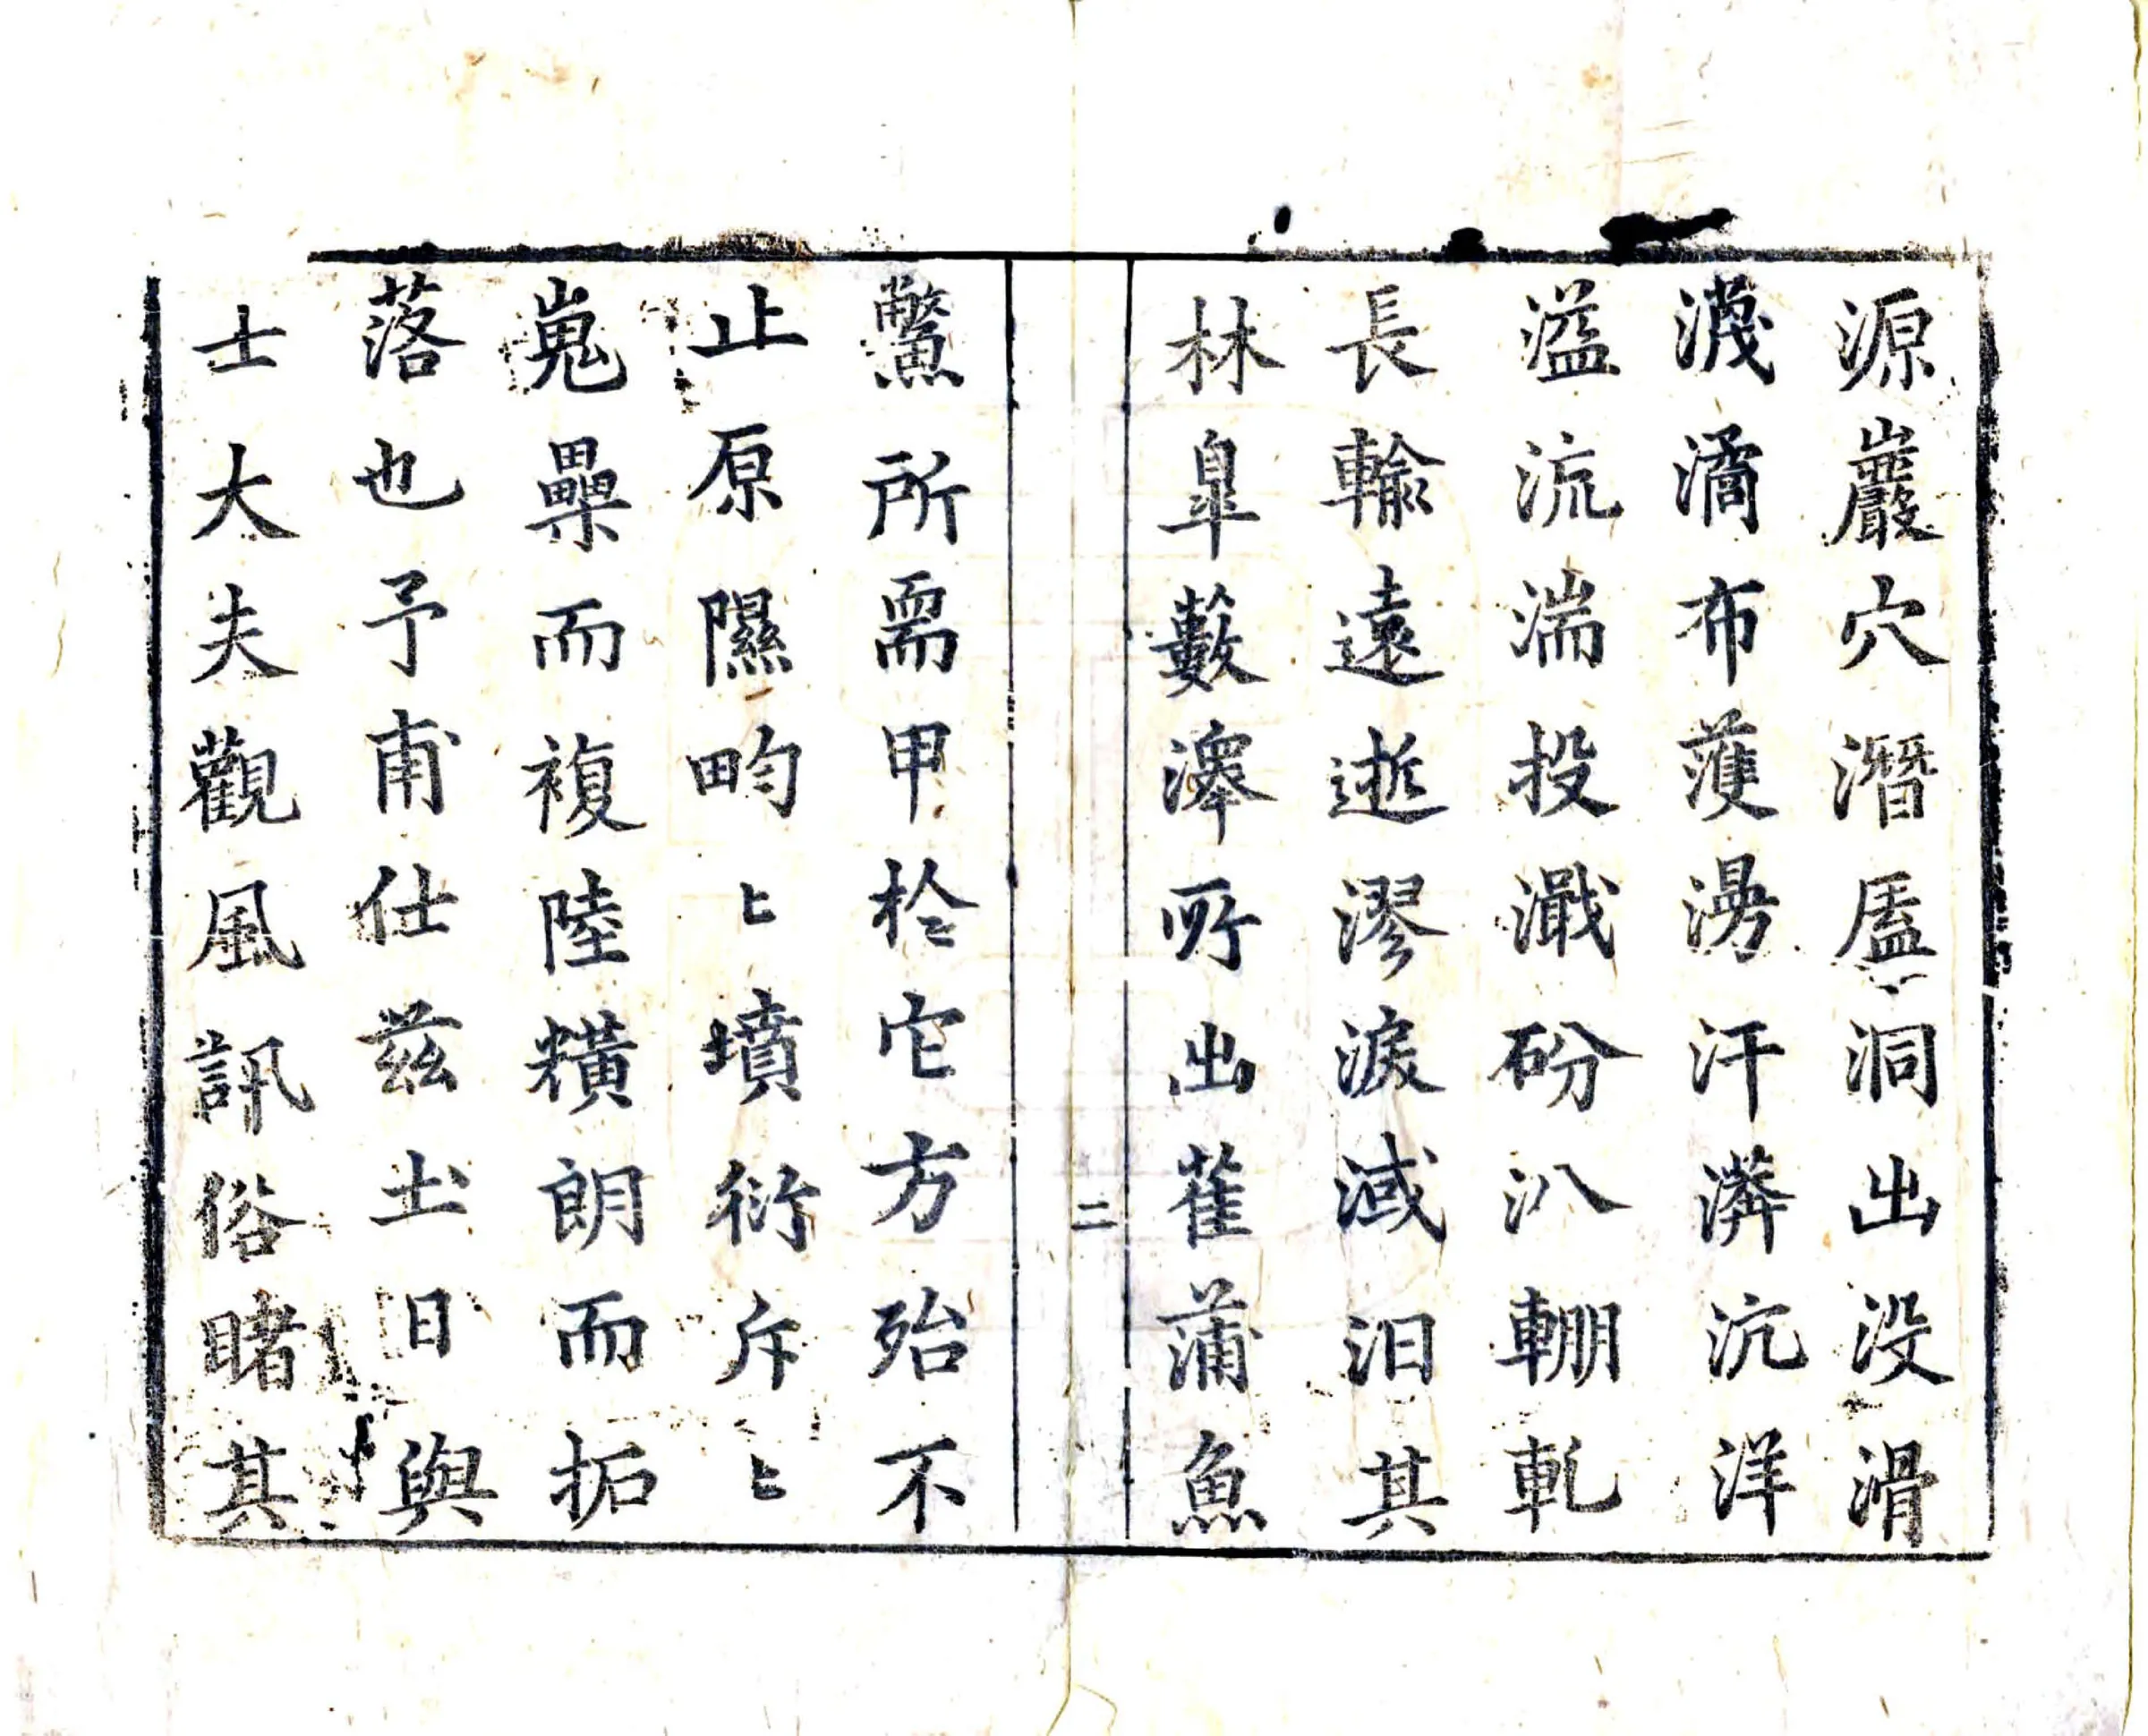 源巖穴潛廅洞出没滑
濊潏布濩漫汗漭沆洋
溢流湍投濈砏汃輣軋
長輸遠逝漻淚淢汩其
林皐藪澤所出雚蒲魚
二
鱉所需甲於它方殆不
止原隰畇〻墳衍斥〻
嵬壘而複陸爌朗而拓
落也予甫仕茲土日與
士大夫觀風訊俗睹其